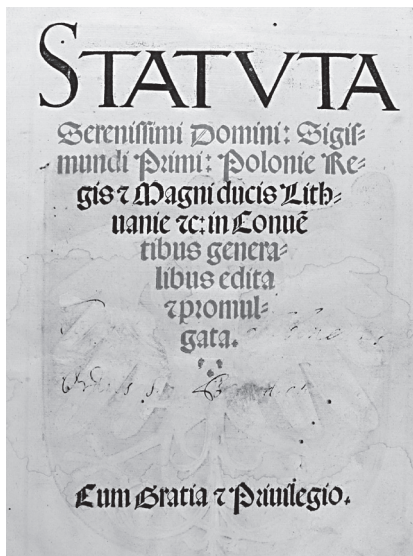 STATVTA
Serenissimi Domini: Sigis-
mundi Primi: Polonie Re-
gis ⁊ Magni ducis Lith-
uanie ⁊c: in Conuē
tibus genera-
libus edita
⁊ promul-
gata.
Cum Gratia ⁊ Priuilegio.